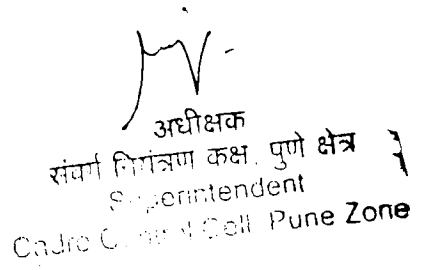 अधीक्षक
संवर्ग नियंत्रण कक्ष, पुणे क्षेत्र
Superintendent
Cadre Control Cell Pune Zone